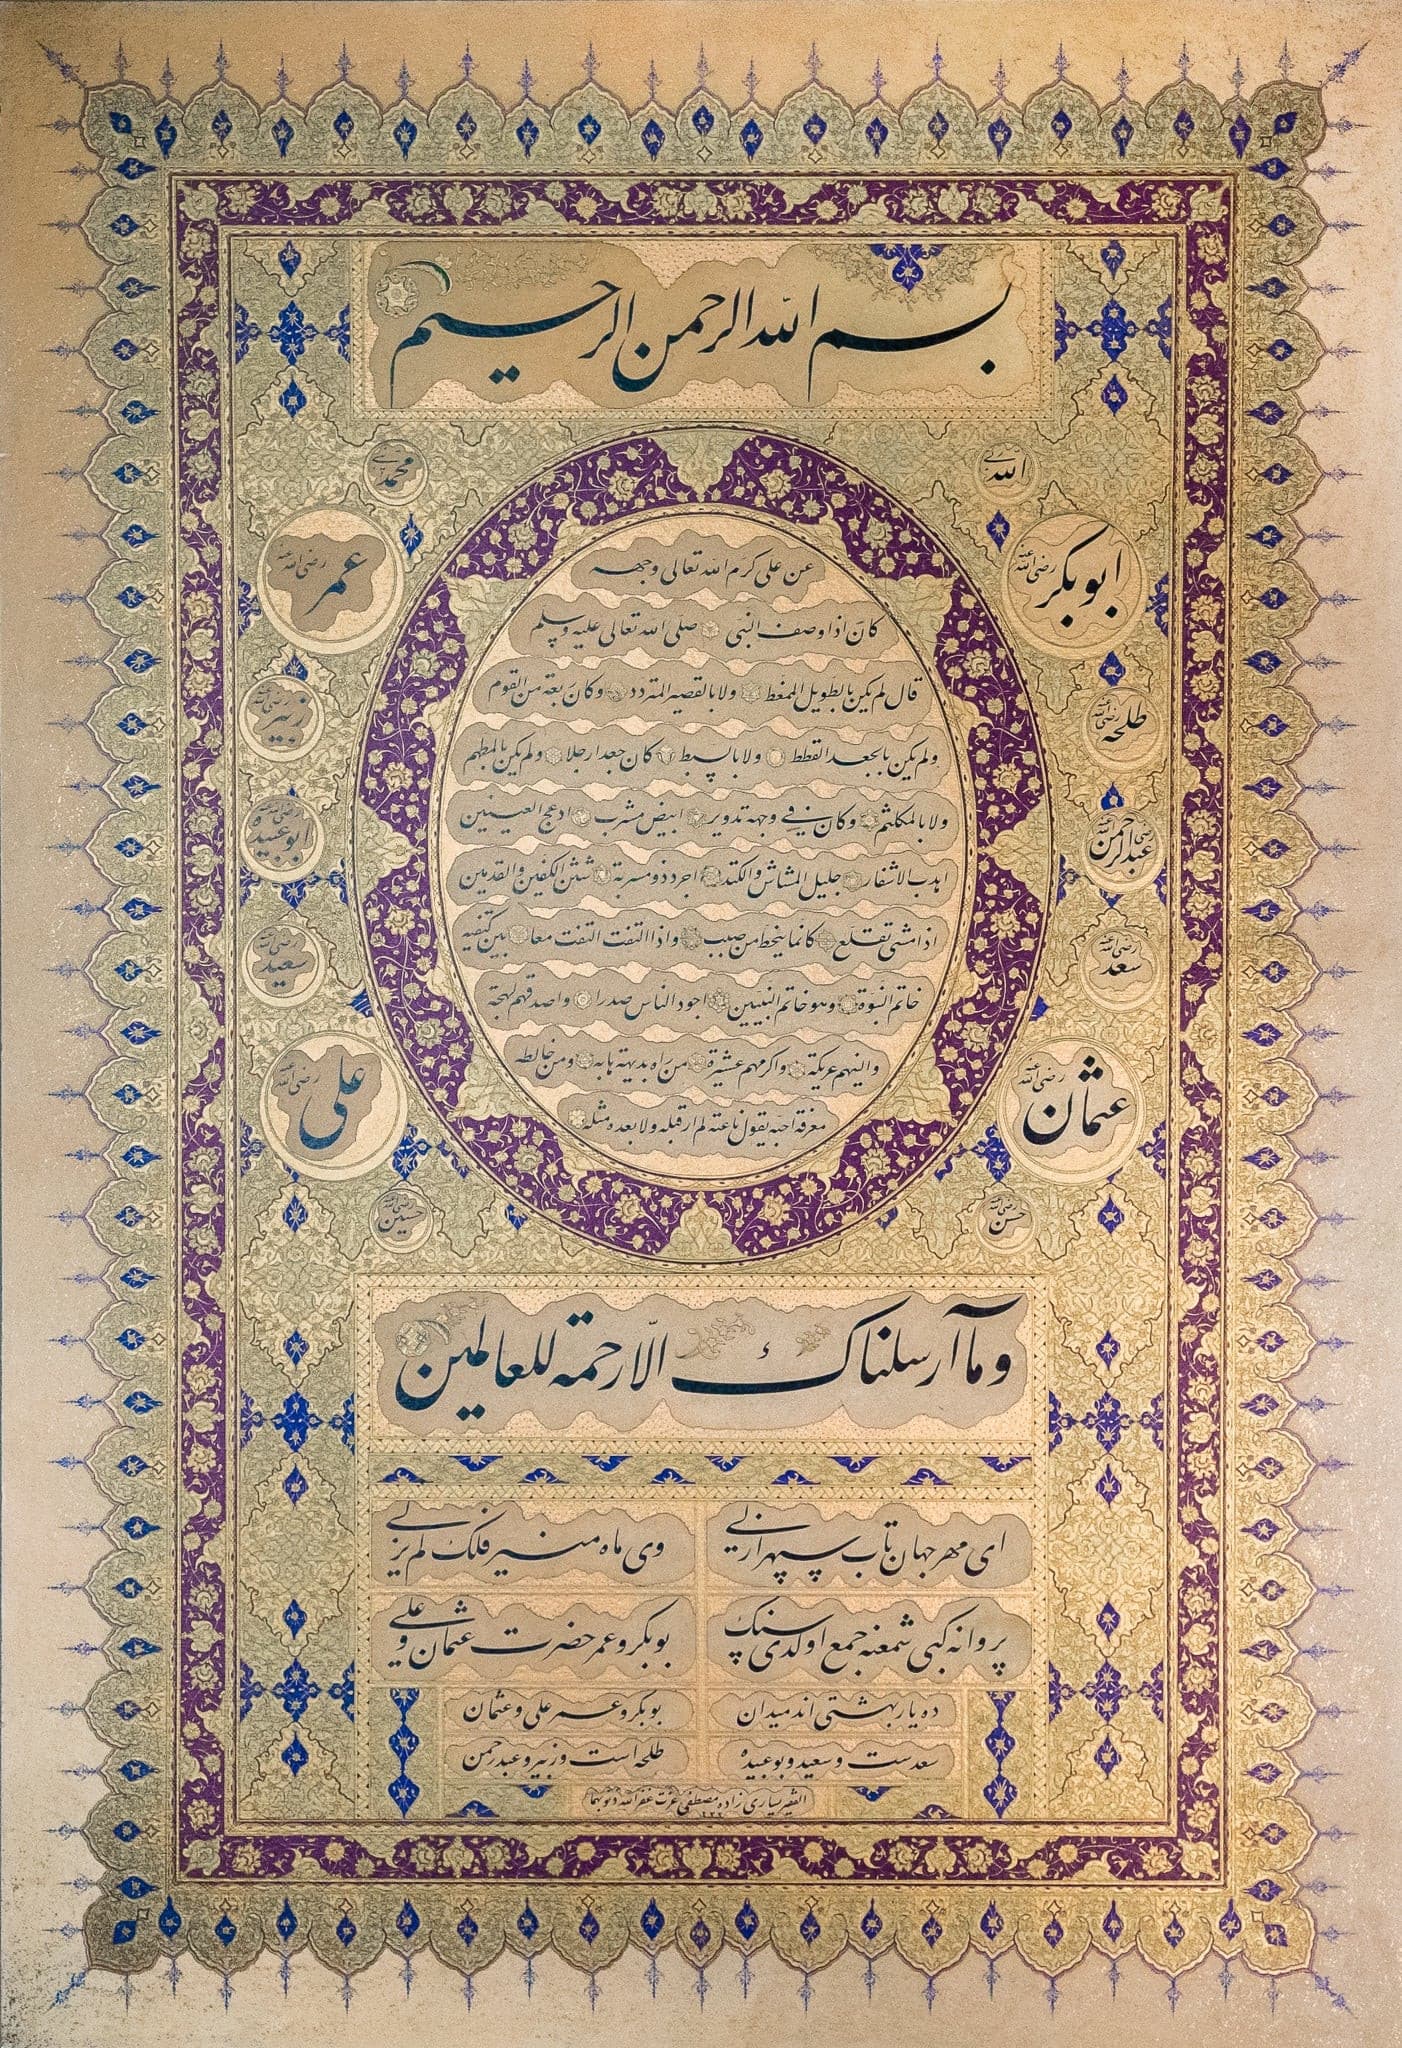 بسم الله الرحمن الرحيم
الله
محمد
ابوبكر رضى الله عنه
عمر رضى الله عنه
عن على كرم الله تعالى وجهه
كان اذا وصف النبى صلى الله تعالى عليه وسلم
قال لم يكن بالطويل الممغط ولا بالقصير المتردد وكان ربعة من القوم
ولم يكن بالجعد القطط ولا بالسبط كان جعدا رجلا ولم يكن بالمطهم
ولا بالمكلثم وكان فى وجهه تدوير ابيض مشرب ادعج العينين
اهدب الاشفار جليل المشاش والكتد اجرد ذو مسربة شثن الكفين والقدمين
اذا مشى تقلع كانما ينحط من صبب واذا التفت التفت معا بين كتفيه
خاتم النبوة وهو خاتم النبيين اجود الناس صدرا واصدقهم لهجة
والينهم عريكة واكرمهم عشيرة من راه بديهة هابه ومن خالطه
معرفة احبه يقول ناعته لم ار قبله ولا بعده مثله
طلحه رضى الله عنه
زبير رضى الله عنه
عبدالرحمن رضى الله عنه
ابوعبيده رضى الله عنه
سعد رضى الله عنه
سعيد رضى الله عنه
عثمان رضى الله عنه
على رضى الله عنه
حسن رضى الله عنه
حسين رضى الله عنه
وما آرسلناك الّا رحمة للعالمين
اى مهر جهان تاب سپهر ازلى وى ماه منير فلك لم يزلى
پروانه كبى شمعنه جمع اولدى سنك بوبكر و عمر حضرت عثمان و على
ده يار بهشتى اند ميدان بوبكر و عمر على و عثمان
سعدست و سعيد و بوعبيده طلحه است و زبير و عبدرحمن
الفقير يسارى زاده مصطفى عزت غفر الله ذنوبهما